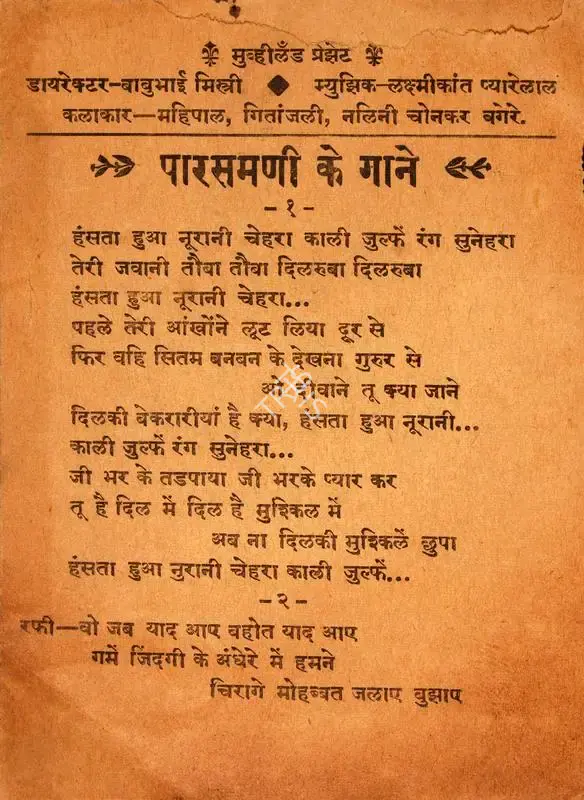 मुव्हीलँड प्रेझेंट
डायरेक्टर-बाबुभाई मिस्री ◆ म्युझिक-लक्ष्मीकांत प्यारेलाल
कलाकार—महिपाल, गितांजली, नलिनी चोनकर वगेरे.
पारसमणी के गाने
-१-
हंसता हुआ नूरानी चेहरा काली जुल्फें रंग सुनेहरा
तेरी जवानी तौबा तौबा दिलरुबा दिलरुबा
हंसता हुआ नूरानी चेहरा...
पहले तेरी आंखोंने लूट लिया दूर से
फिर वहि सितम बनबन के देखना गुरुर से
ओ दीवाने तू क्या जाने
दिलकी बेकरारीयां है क्या, हंसता हुआ नूरानी...
काली जुल्फें रंग सुनेहरा...
जी भर के तडपाया जी भरके प्यार कर
तू है दिल में दिल है मुश्किल में
अब ना दिलकी मुश्किलें छुपा
हंसता हुआ नुरानी चेहरा काली जुल्फें...
-२-
रफी—वो जब याद आए बहोत याद आए
गमें जिंदगी के अंधेरे में हमने
चिरागे मोहब्बत जलाए बुझाए